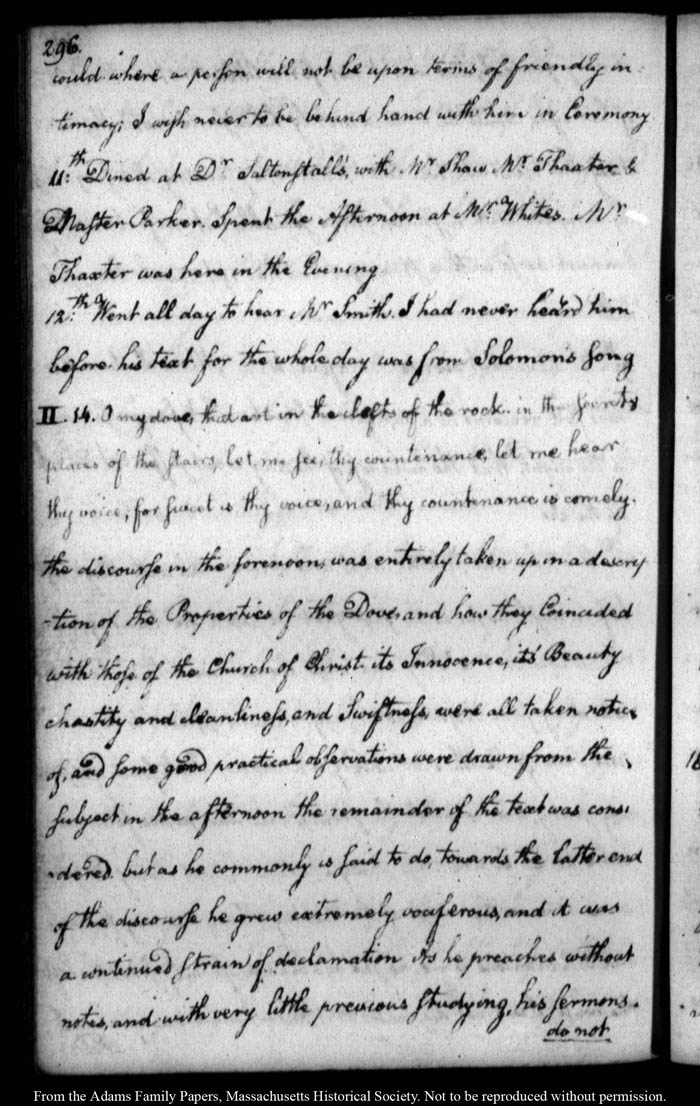 296.
could where a person will not be upon terms of friendly in-
timacy; I wish never to be behind hand with him in Ceremony
11:th Dined at Dr Saltonstall's, with Mr Shaw Mr Thaxter &
Master Parker. Spent the Afternoon at Mr Whites. Mr
Thaxter was here in the Evening
12:th Went all day to hear Mr Smith. I had never heard him
before. his text for the whole day was from Solomon's Song
II. 14. O my dove, that art in the clefts of the rock. in the secret
places of the stairs, let me see, thy countenance, let me hear
thy voice, for sweet is thy voice, and thy countenance is comely.
the discourse in the forenoon, was entirely taken up in a descrip
-tion of the Properties of the Dove, and how they Coincided
with those of the Church of Christ. its Innocence, its Beauty
chastity and cleanliness, and Swiftness, were all taken notice
of, and some good practical observations were drawn from the
subject in the afternoon the remainder of the text was consi
-dered. but as he commonly is said to do, towards the latter end
of the discourse he grew extremely vociferous, and it was
a continued strain of declamation As he preaches without
notes, and with very little previous studying, his sermons.
do not
From the Adams Family Papers, Massachusetts Historical Society. Not to be reproduced without permission.